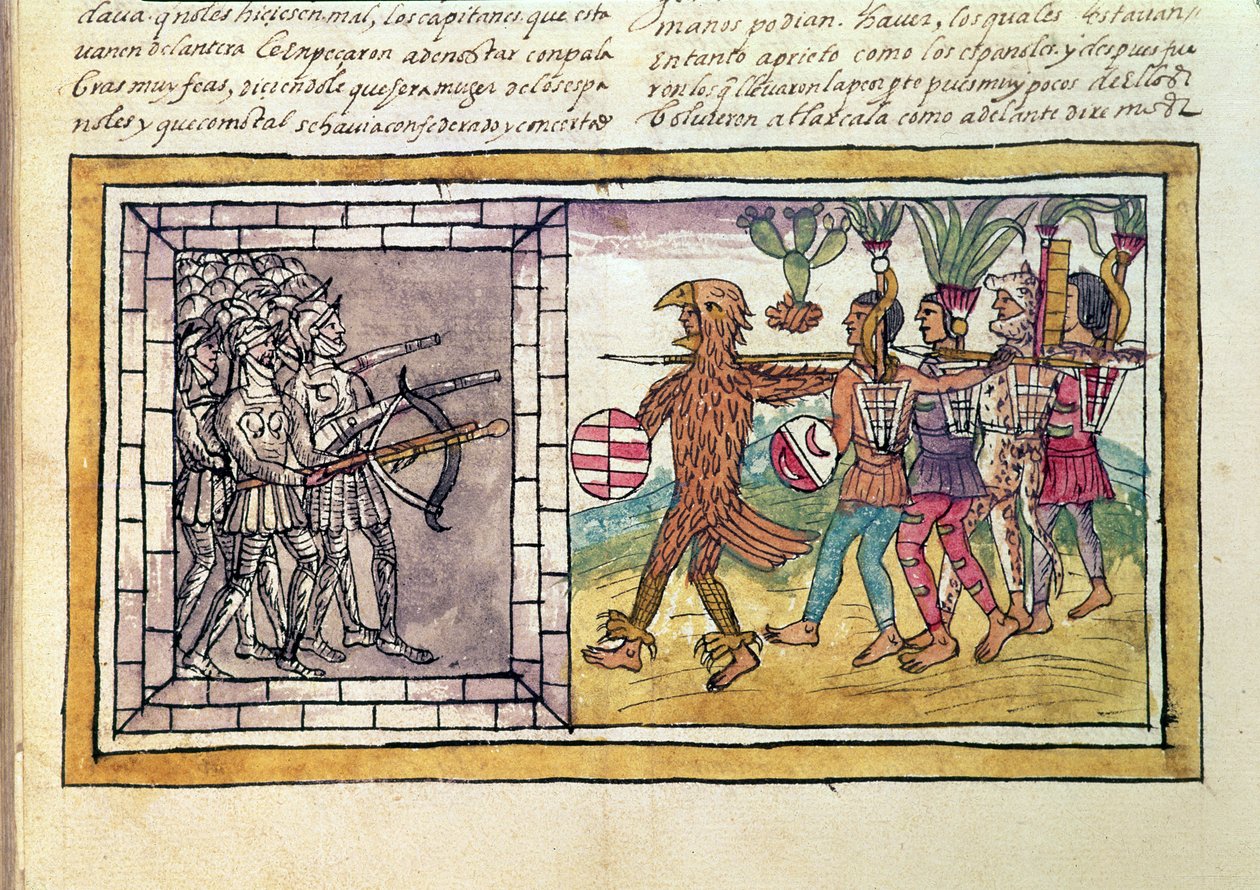 dava. q̃ noles hiciesen mal, los capitanes. que esta
van en delantera le Enpeçaron a denostar con pala
bras muy feas, diciendole que sera muger de los espa
ñoles y que como tal se havia confederado y concertado
manos podian. haver, los quales Estavan
En tanto aprieto como los españoles. y despues fue
ron los q̃ llevaron la peor pte pues muy pocos de Ellos
bolvieron a tlaxcala como adelante diremos